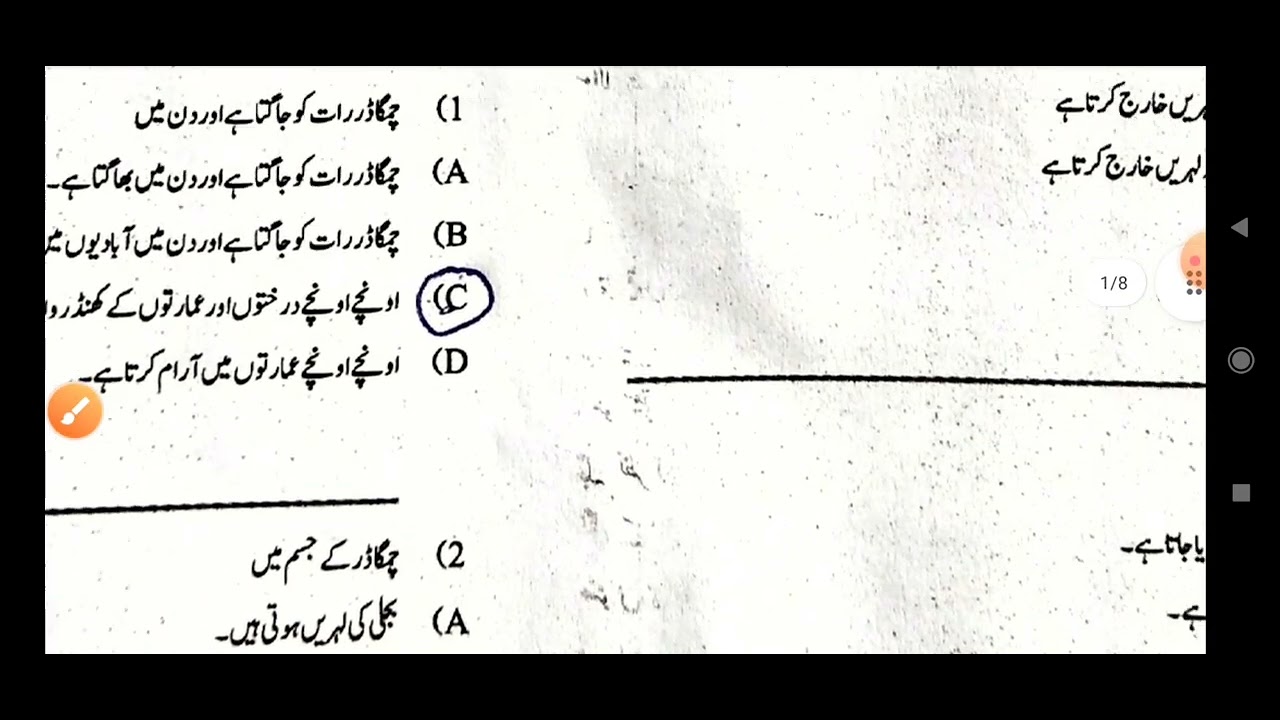 1) چمگاڈر رات کو جاگتا ہے اور دن میں
A) چمگاڈر رات کو جاگتا ہے اور دن میں بھاگتا ہے۔
B) چمگاڈر رات کو جاگتا ہے اور دن میں آبادیوں میں
C) اونچے اونچے درختوں اور عمارتوں کے کھنڈر
D) اونچے اونچے عمارتوں میں آرام کرتا ہے۔
2) چمگاڈر کے جسم میں
A) بجلی کی لہریں ہوتی ہیں۔
خارج کرتا ہے
لہریں خارج کرتا ہے
1/8
جاتا ہے۔
ہے۔